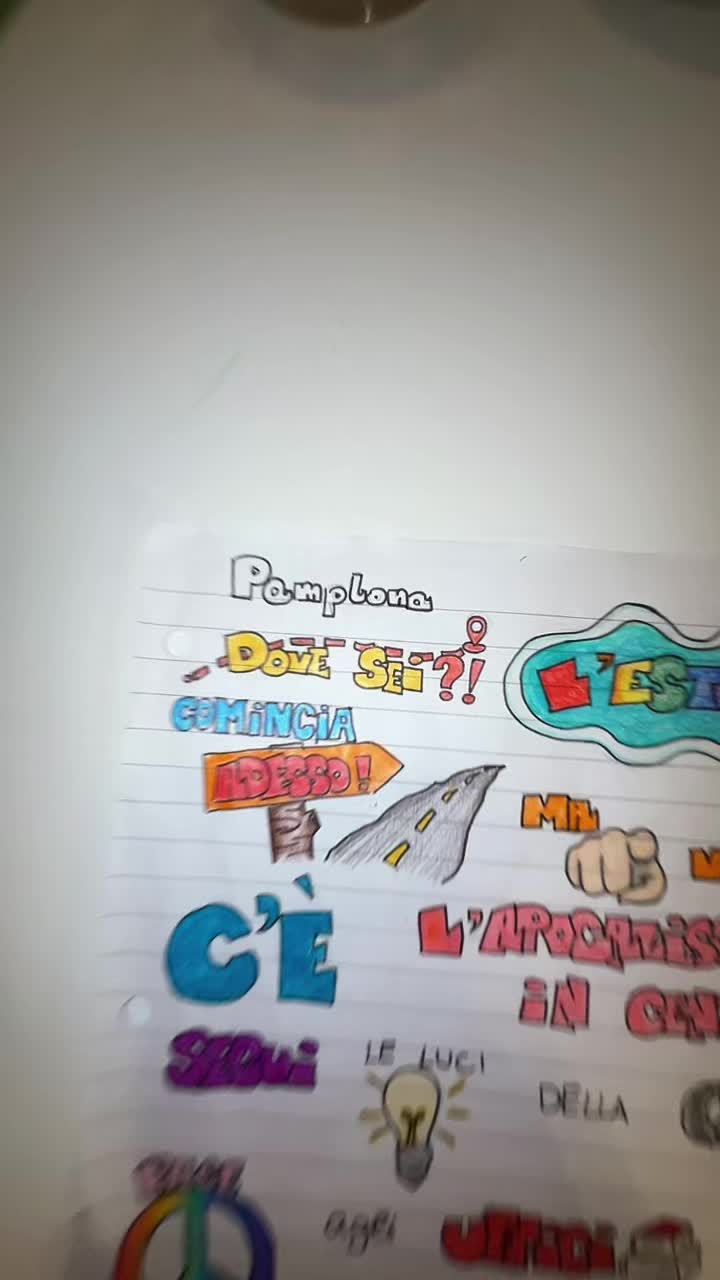 Pamplona
DOVE SEI?!
L'EST
COMINCIA
ADESSO!
MA
C'È
L'APOCALISS
IN CEN
SEGUI LE LUCI DELLA
PACE
agli UFFICI